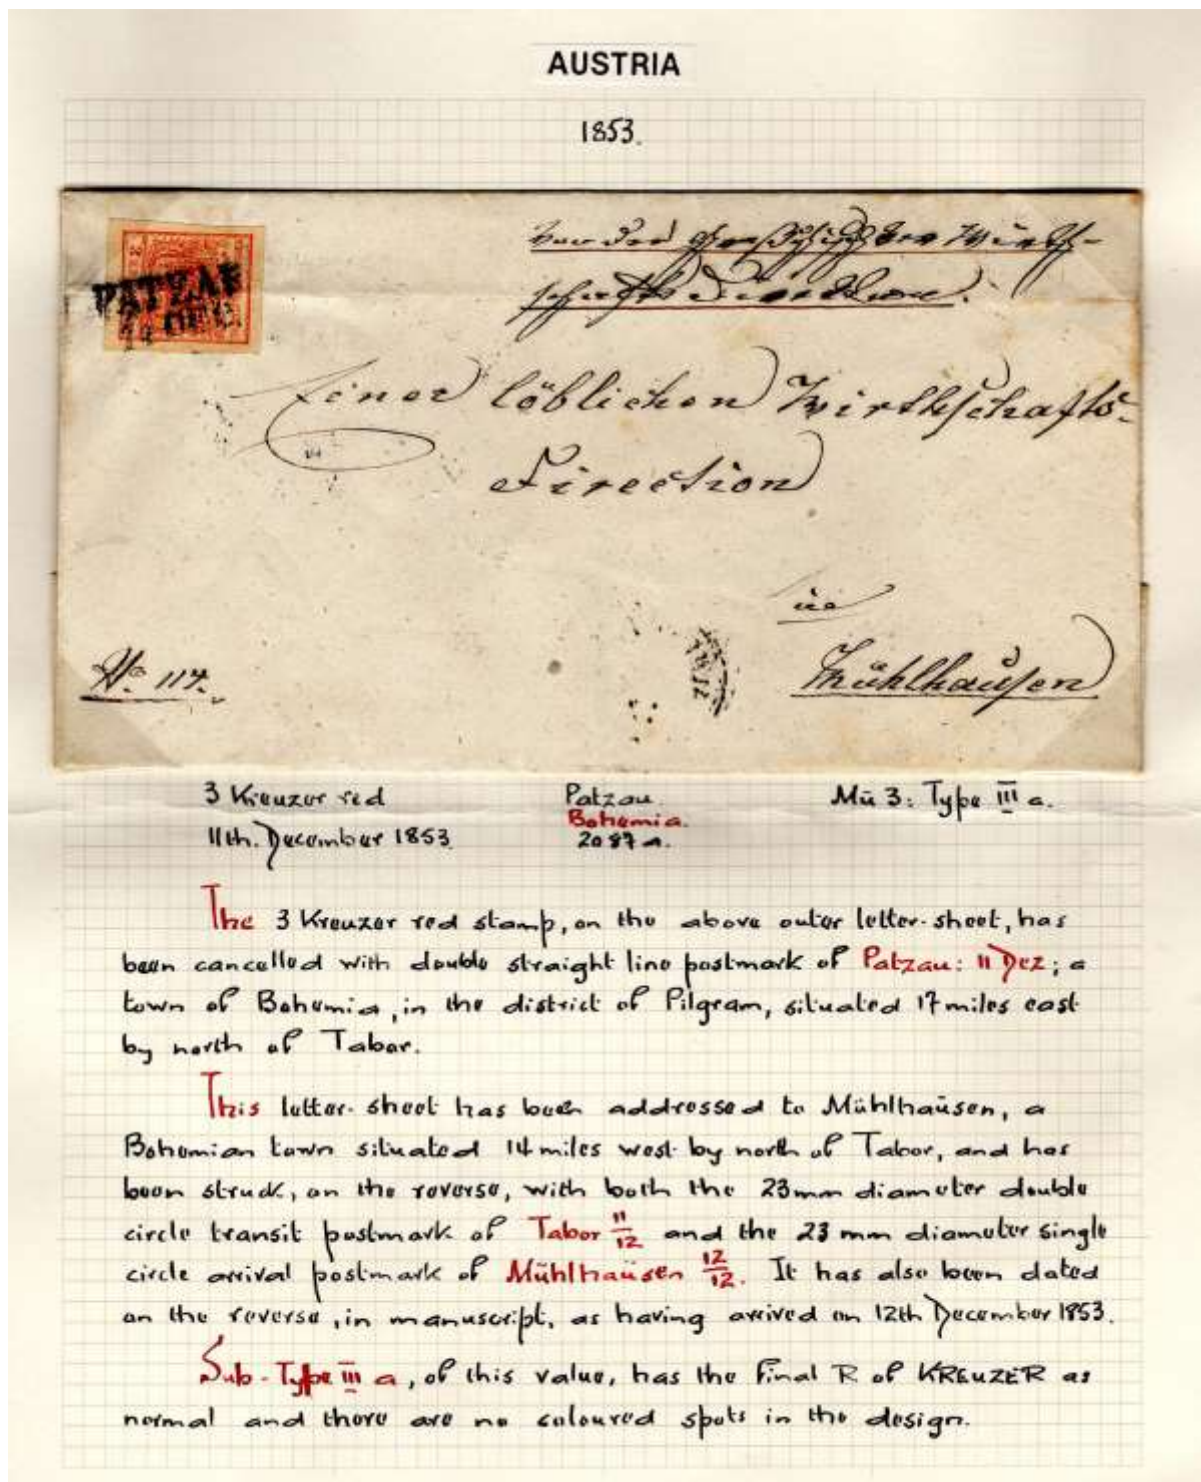 AUSTRIA
1853.
PATZAU
11 DEC.
von der
Einer löblichen Wirthschafts-
Direction
in
Mühlhausen
No. 114.
3 Kreuzer red Patzau. Mü 3: Type III a.
Bohemia.
11th. December 1853. 2087 a.
The 3 Kreuzer red stamp, on the above outer letter-sheet, has
been cancelled with double straight line postmark of Patzau: 11 Dez; a
town of Bohemia, in the district of Pilgram, situated 17 miles east
by north of Tabor.
This letter-sheet has been addressed to Mühlhaüsen, a
Bohemian town situated 14 miles west by north of Tabor, and has
been struck, on the reverse, with both the 23mm diameter double
circle transit postmark of Tabor 11/12 and the 23 mm diameter single
circle arrival postmark of Mühlhaüsen 12/12. It has also been dated
on the reverse, in manuscript, as having arrived on 12th December 1853.
Sub-Type III a, of this value, has the final R of KREUZER as
normal and there are no coloured spots in the design.